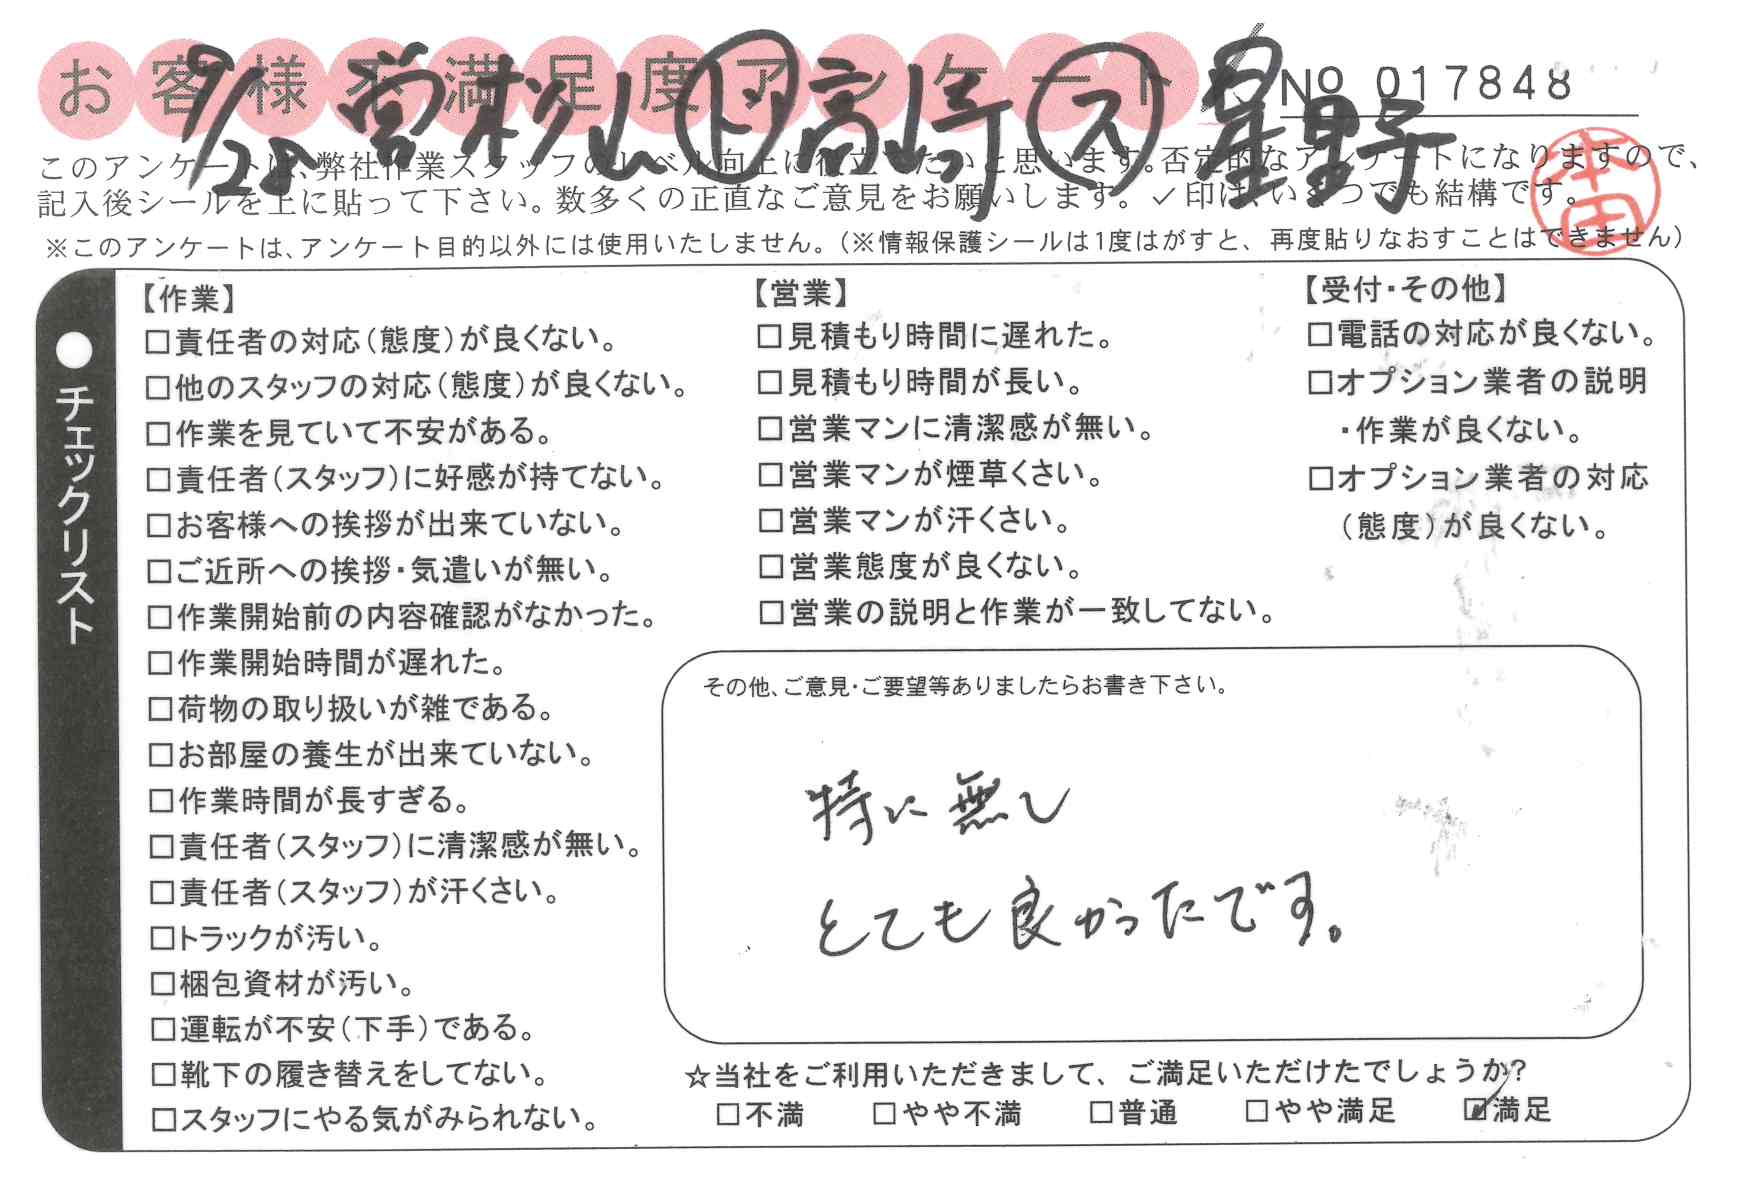 お客様不満足度アンケート
No 017848
9/28 営松山 ト 高崎 ス 星野
本田
このアンケートは、弊社作業スタッフのレベル向上に役立てたいと思います。否定的なアンケートになりますので、
記入後シールを上に貼って下さい。数多くの正直なご意見をお願いします。✓印は、いくつでも結構です。
※このアンケートは、アンケート目的以外には使用いたしません。(※情報保護シールは1度はがすと、再度貼りなおすことはできません)
●チェックリスト
【作業】
□責任者の対応(態度)が良くない。
□他のスタッフの対応(態度)が良くない。
□作業を見ていて不安がある。
□責任者(スタッフ)に好感が持てない。
□お客様への挨拶が出来ていない。
□ご近所への挨拶・気遣いが無い。
□作業開始前の内容確認がなかった。
□作業開始時間が遅れた。
□荷物の取り扱いが雑である。
□お部屋の養生が出来ていない。
□作業時間が長すぎる。
□責任者(スタッフ)に清潔感が無い。
□責任者(スタッフ)が汗くさい。
□トラックが汚い。
□梱包資材が汚い。
□運転が不安(下手)である。
□靴下の履き替えをしてない。
□スタッフにやる気がみられない。
【営業】
□見積もり時間に遅れた。
□見積もり時間が長い。
□営業マンに清潔感が無い。
□営業マンが煙草くさい。
□営業マンが汗くさい。
□営業態度が良くない。
□営業の説明と作業が一致してない。
【受付・その他】
□電話の対応が良くない。
□オプション業者の説明
・作業が良くない。
□オプション業者の対応
(態度)が良くない。
その他、ご意見・ご要望等ありましたらお書き下さい。
特に無し
とても良かったです。
☆当社をご利用いただきまして、ご満足いただけたでしょうか?
□不満 □やや不満 □普通 □やや満足 ☑満足